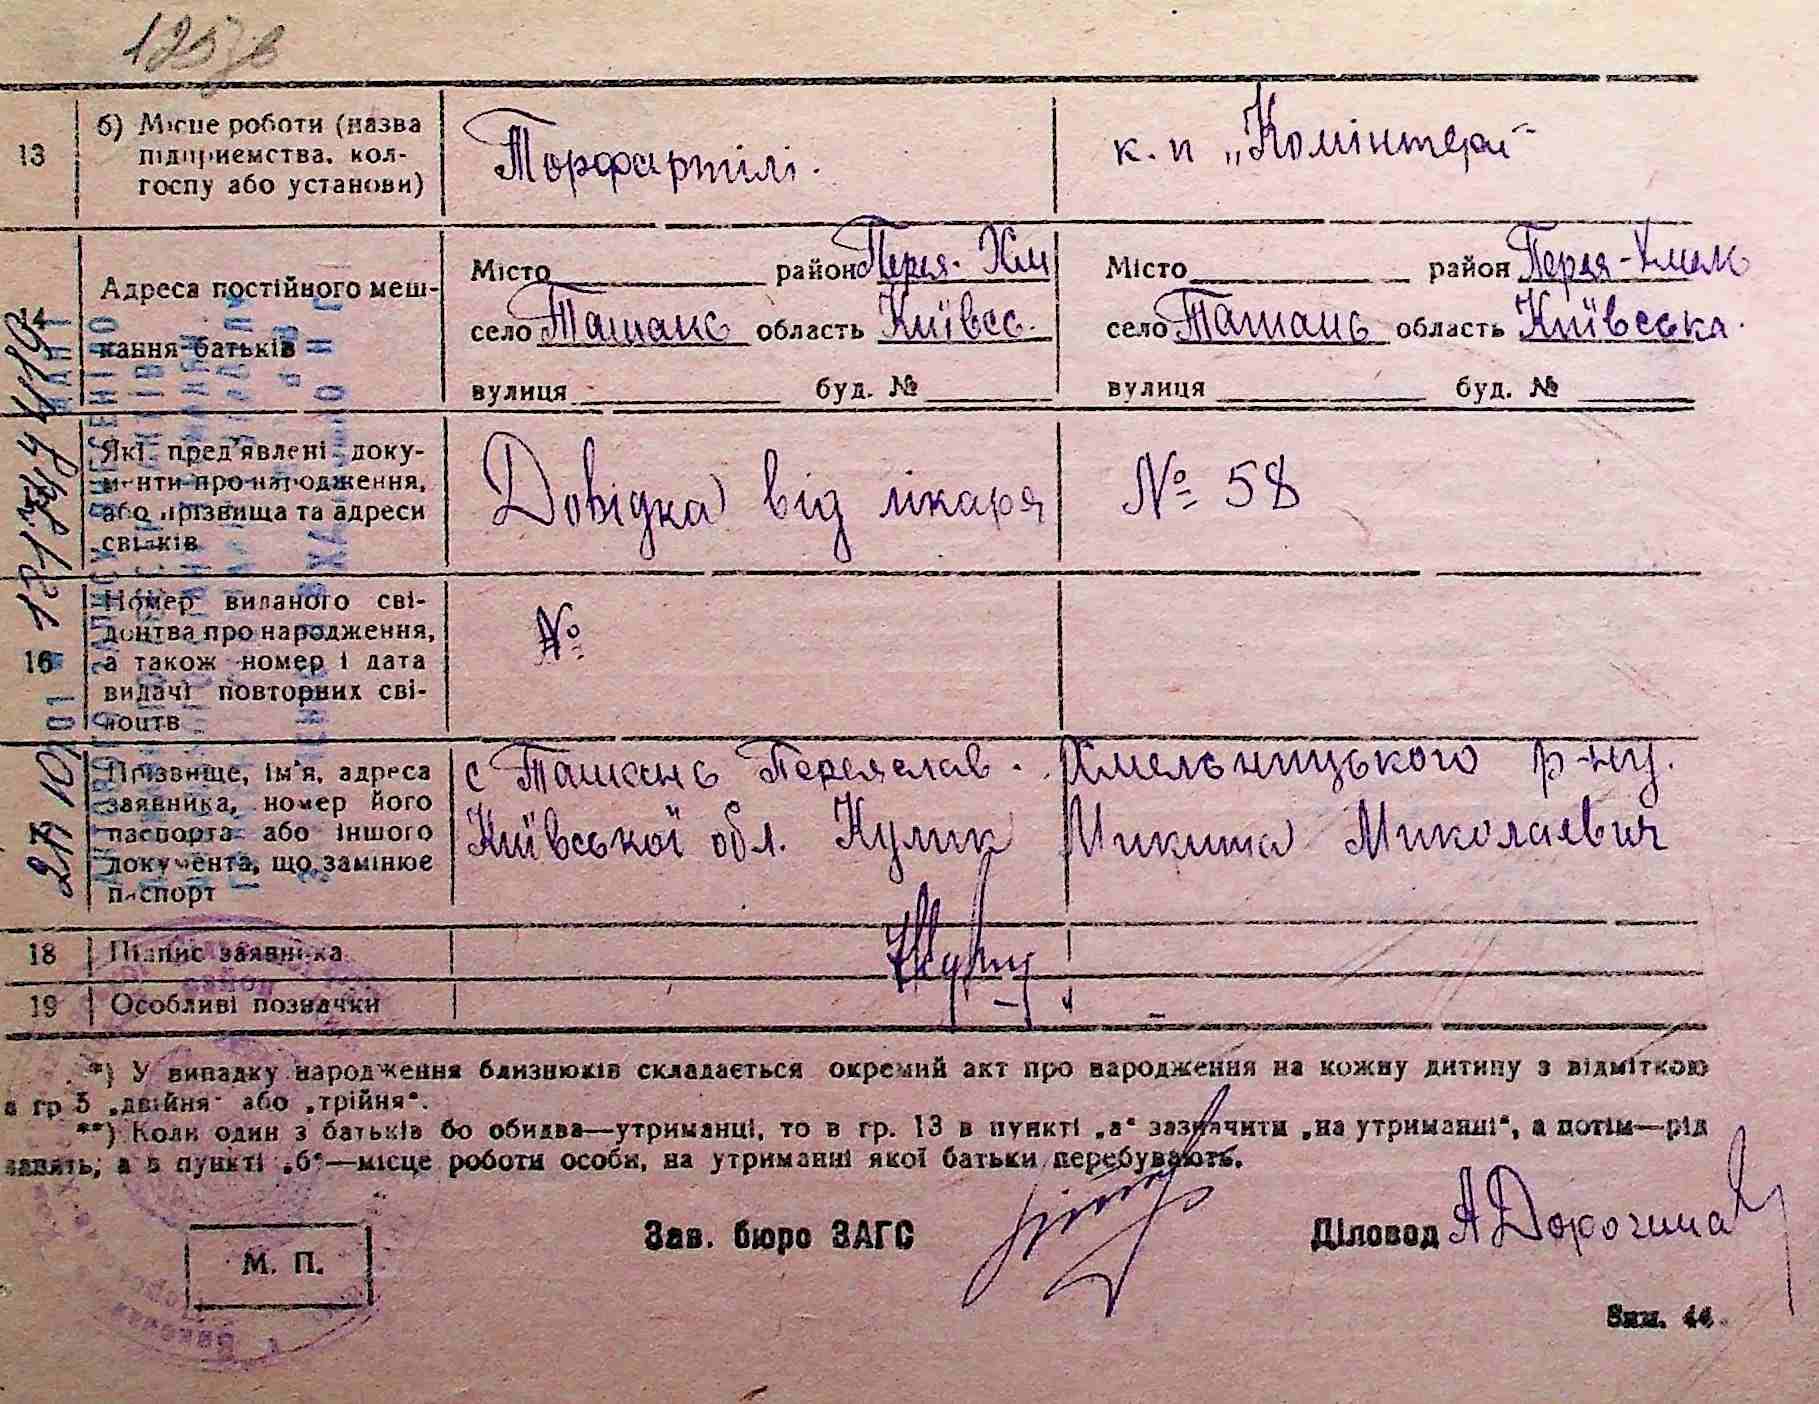 13
б) Місце роботи (назва
підприємства, кол-
госпу або установи)
Торфартілі.
к. п „Комінтерн"
14
Адреса постійного меш-
кання батьків
Місто район Перея-Хм
село Ташань область Київсь.
вулиця буд. №
Місто район Перея-Хмель
село Ташань область Київська.
вулиця буд. №
Які пред'явлені доку-
менти про народження,
або прізвища та адреси
свідків
Довідка від лікаря
№ 58
16
Номер виданого сві-
доцтва про народження,
а також номер і дата
видачі повторних сві-
доцтв
№
Прізвище, ім'я, адреса
заявника, номер його
паспорта або іншого
документа, що замінює
паспорт
с Ташань Переяслав. Хмельницького р-ну.
Київської обл. Кулик Микита Миколаєвич
18
Підпис заявника
19
Особливі позначки
*) У випадку народження близнюків складається окремий акт про народження на кожну дитину з відміткою
в гр 5 „двійня" або „трійня".
**) Коли один з батьків бо обидва—утриманці, то в гр. 13 в пункті „а" зазначити „на утриманні", а потім—рід
занять, а в пункті „б"—місце роботи особи, на утриманні якої батьки перебувають.
М. П.
Зав. бюро ЗАГС
Діловод
Зам. 44